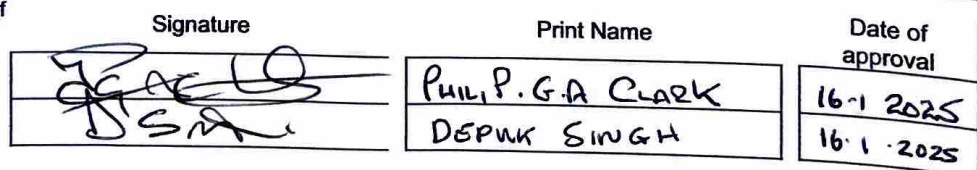 f
Signature Print Name Date of
approval
PHILIP. G.A CLARK 16-1 2025
DEPUK SINGH 16.1.2025